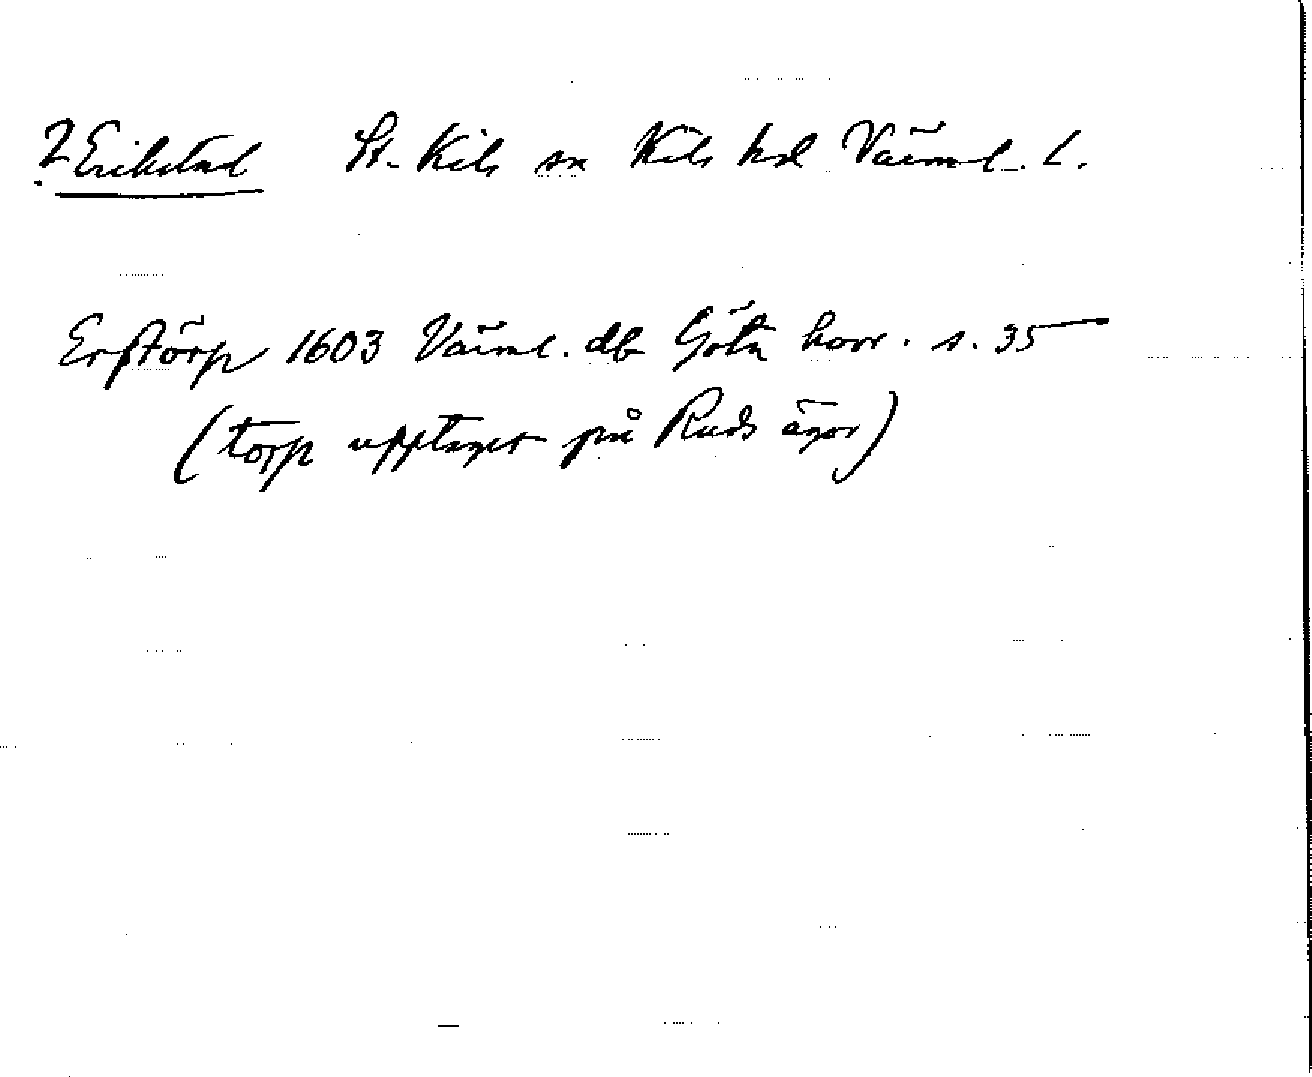 ?Erikstad St. Kils sn Kils hd Värml. l.
Erstörp 1603 Värml. db Göta hovr. s. 35
(torp upptaget på Ruds ägor)